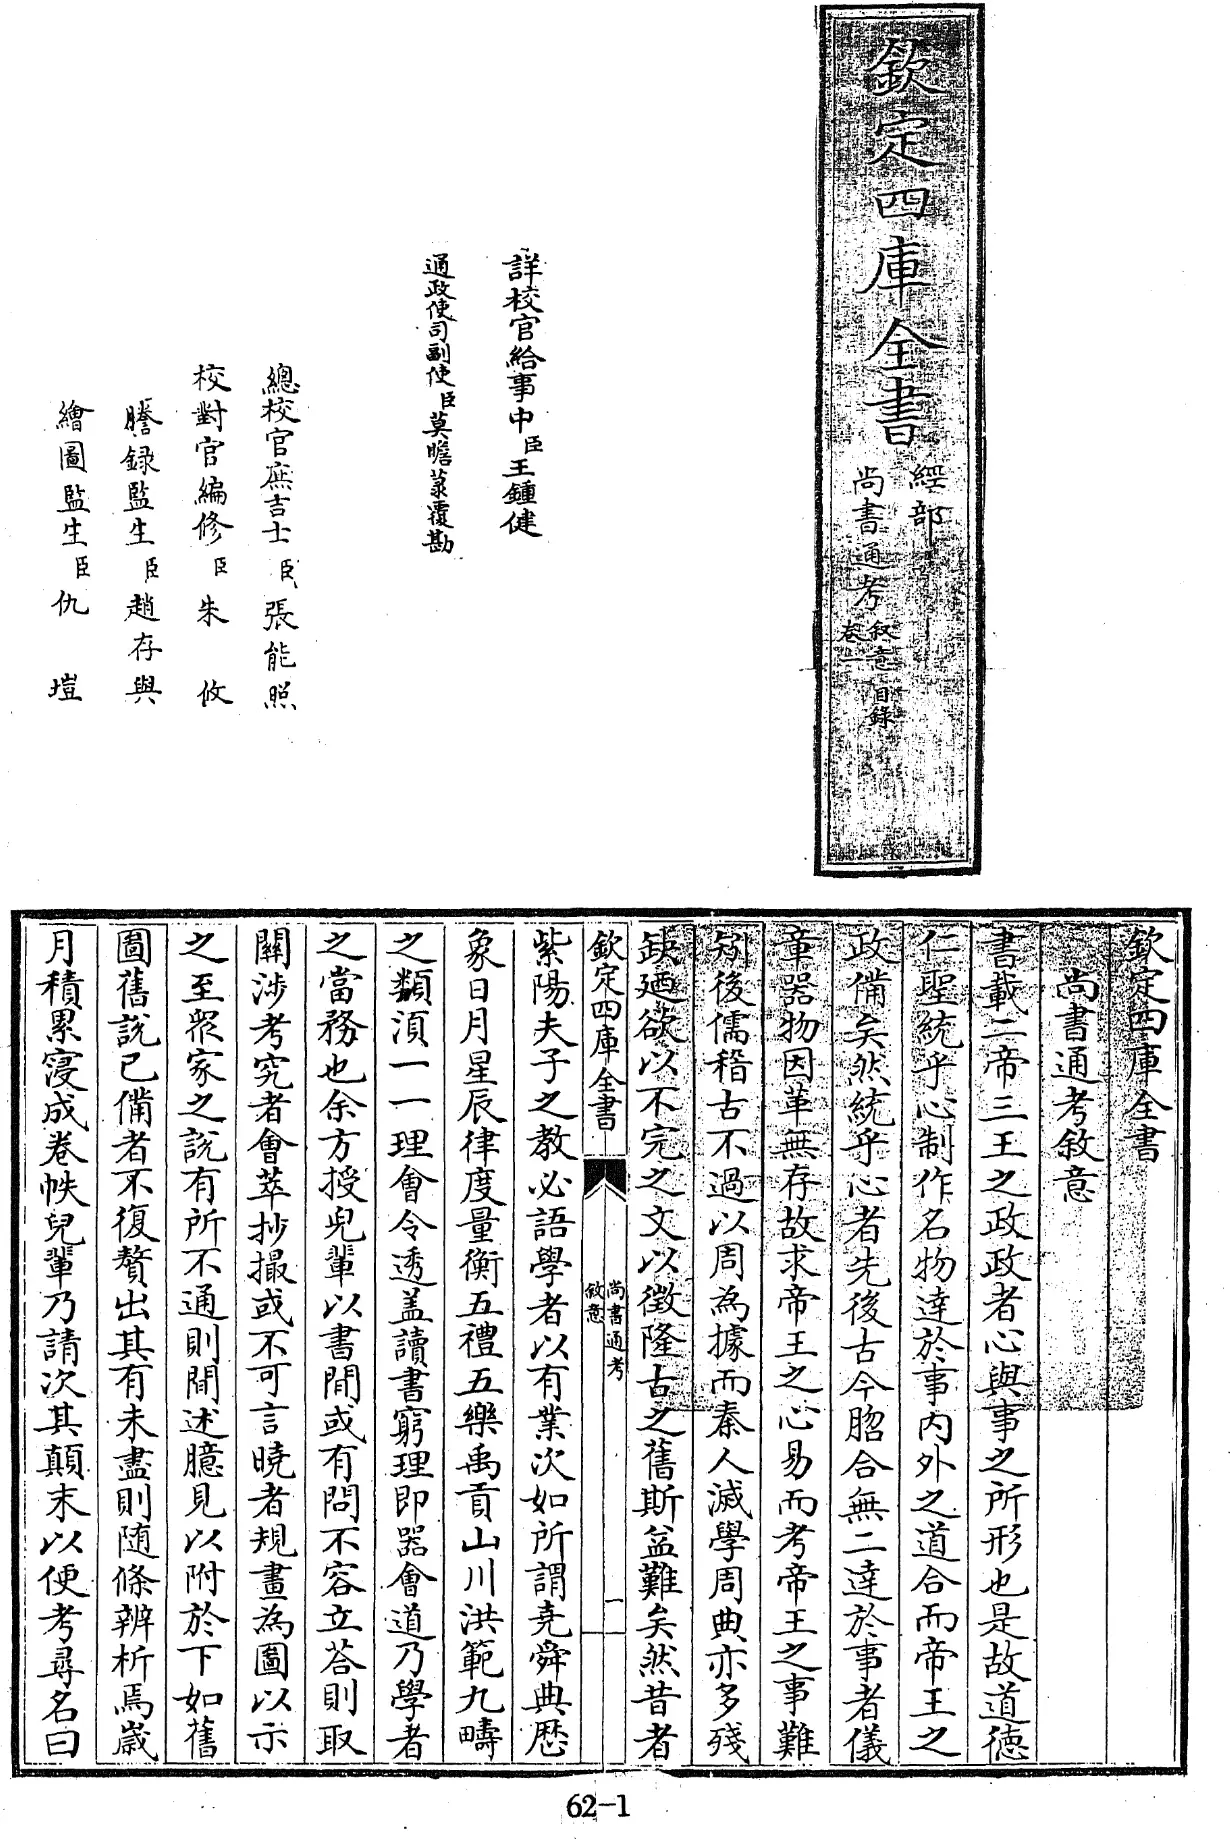 欽定四庫全書
經部
尚書通考
敘意
目錄
卷一
詳校官給事中臣王鍾健
通政使司副使臣莫瞻菉覆勘
總校官庶吉士臣張能照
校對官編修臣朱攸
謄錄監生臣趙存與
繪圖監生臣仇塏
欽定四庫全書
尚書通考敘意
書載二帝三王之政政者心與事之所形也是故道德
仁聖統乎心制作名物達於事內外之道合而帝王之
政備矣然統乎心者先後古今脗合無二達於事者儀
章器物因革無存故求帝王之心易而考帝王之事難
矧後儒稽古不過以周為據而秦人滅學周典亦多殘
缺廼欲以不完之文以徵隆古之舊斯益難矣然昔者
欽定四庫全書
尚書通考
敘意
一
紫陽夫子之教必語學者以有業次如所謂堯舜典歷
象日月星辰律度量衡五禮五樂禹貢山川洪範九疇
之類須一一理會令透盖讀書窮理即器會道乃學者
之當務也余方授兒輩以書間或有問不容立荅則取
關涉考究者會萃抄撮或不可言曉者規畫為圖以示
之至衆家之說有所不通則間述臆見以附於下如舊
圖舊說已備者不復贅出其有未盡則随條辨析焉嵗
月積累寖成卷帙兒輩乃請次其顛末以便考尋名曰
62-1